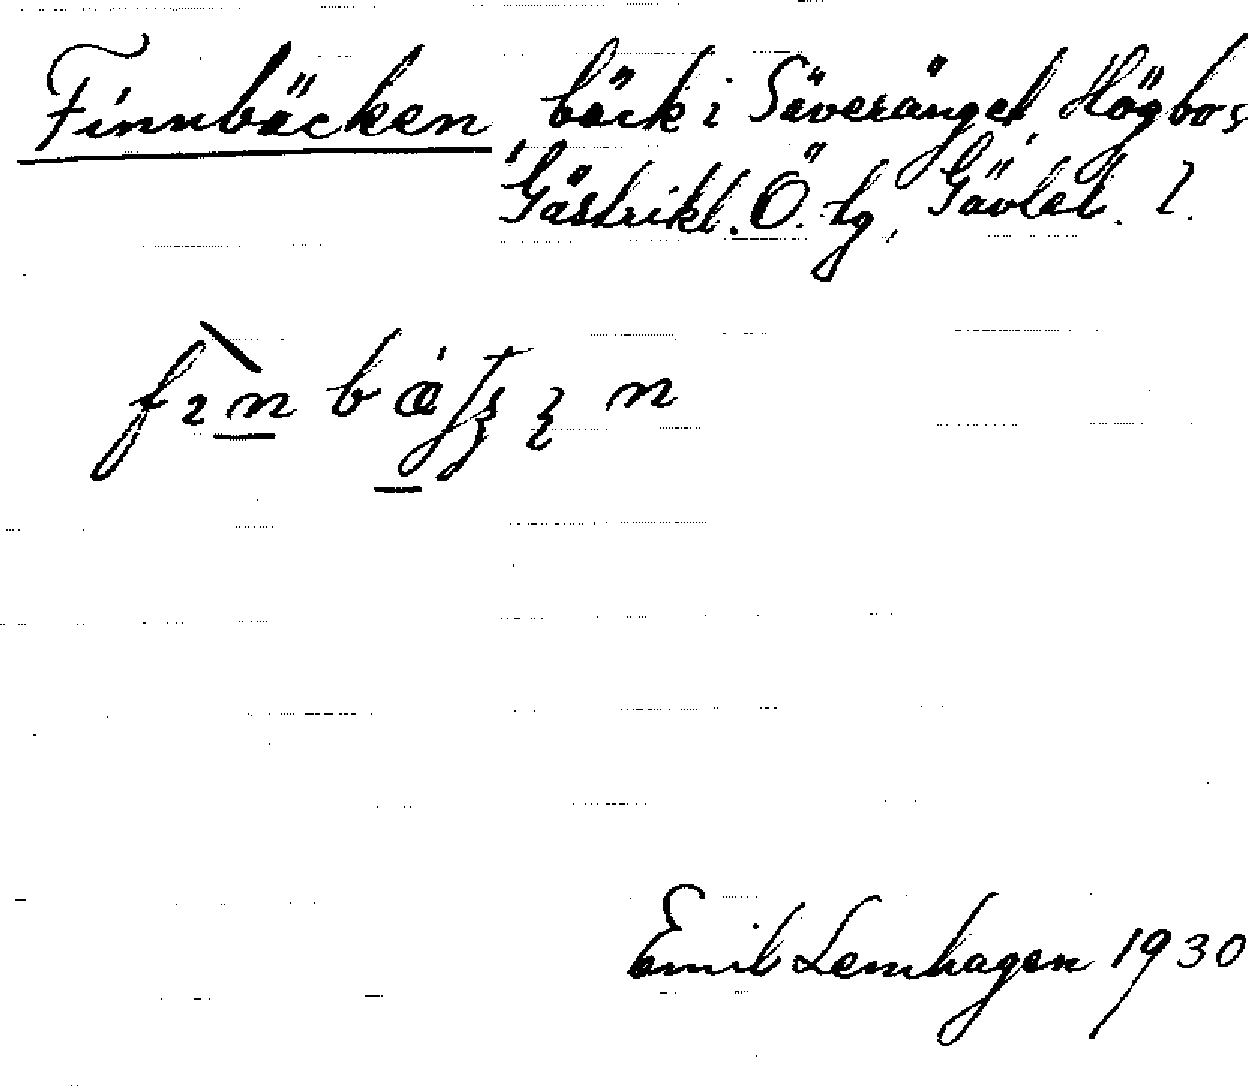 Finnbäcken bäck i Säveränget, Högbo s,
Gästrikl. Ö. tg, Gävleb. l.
Emil Lemhagen 1930